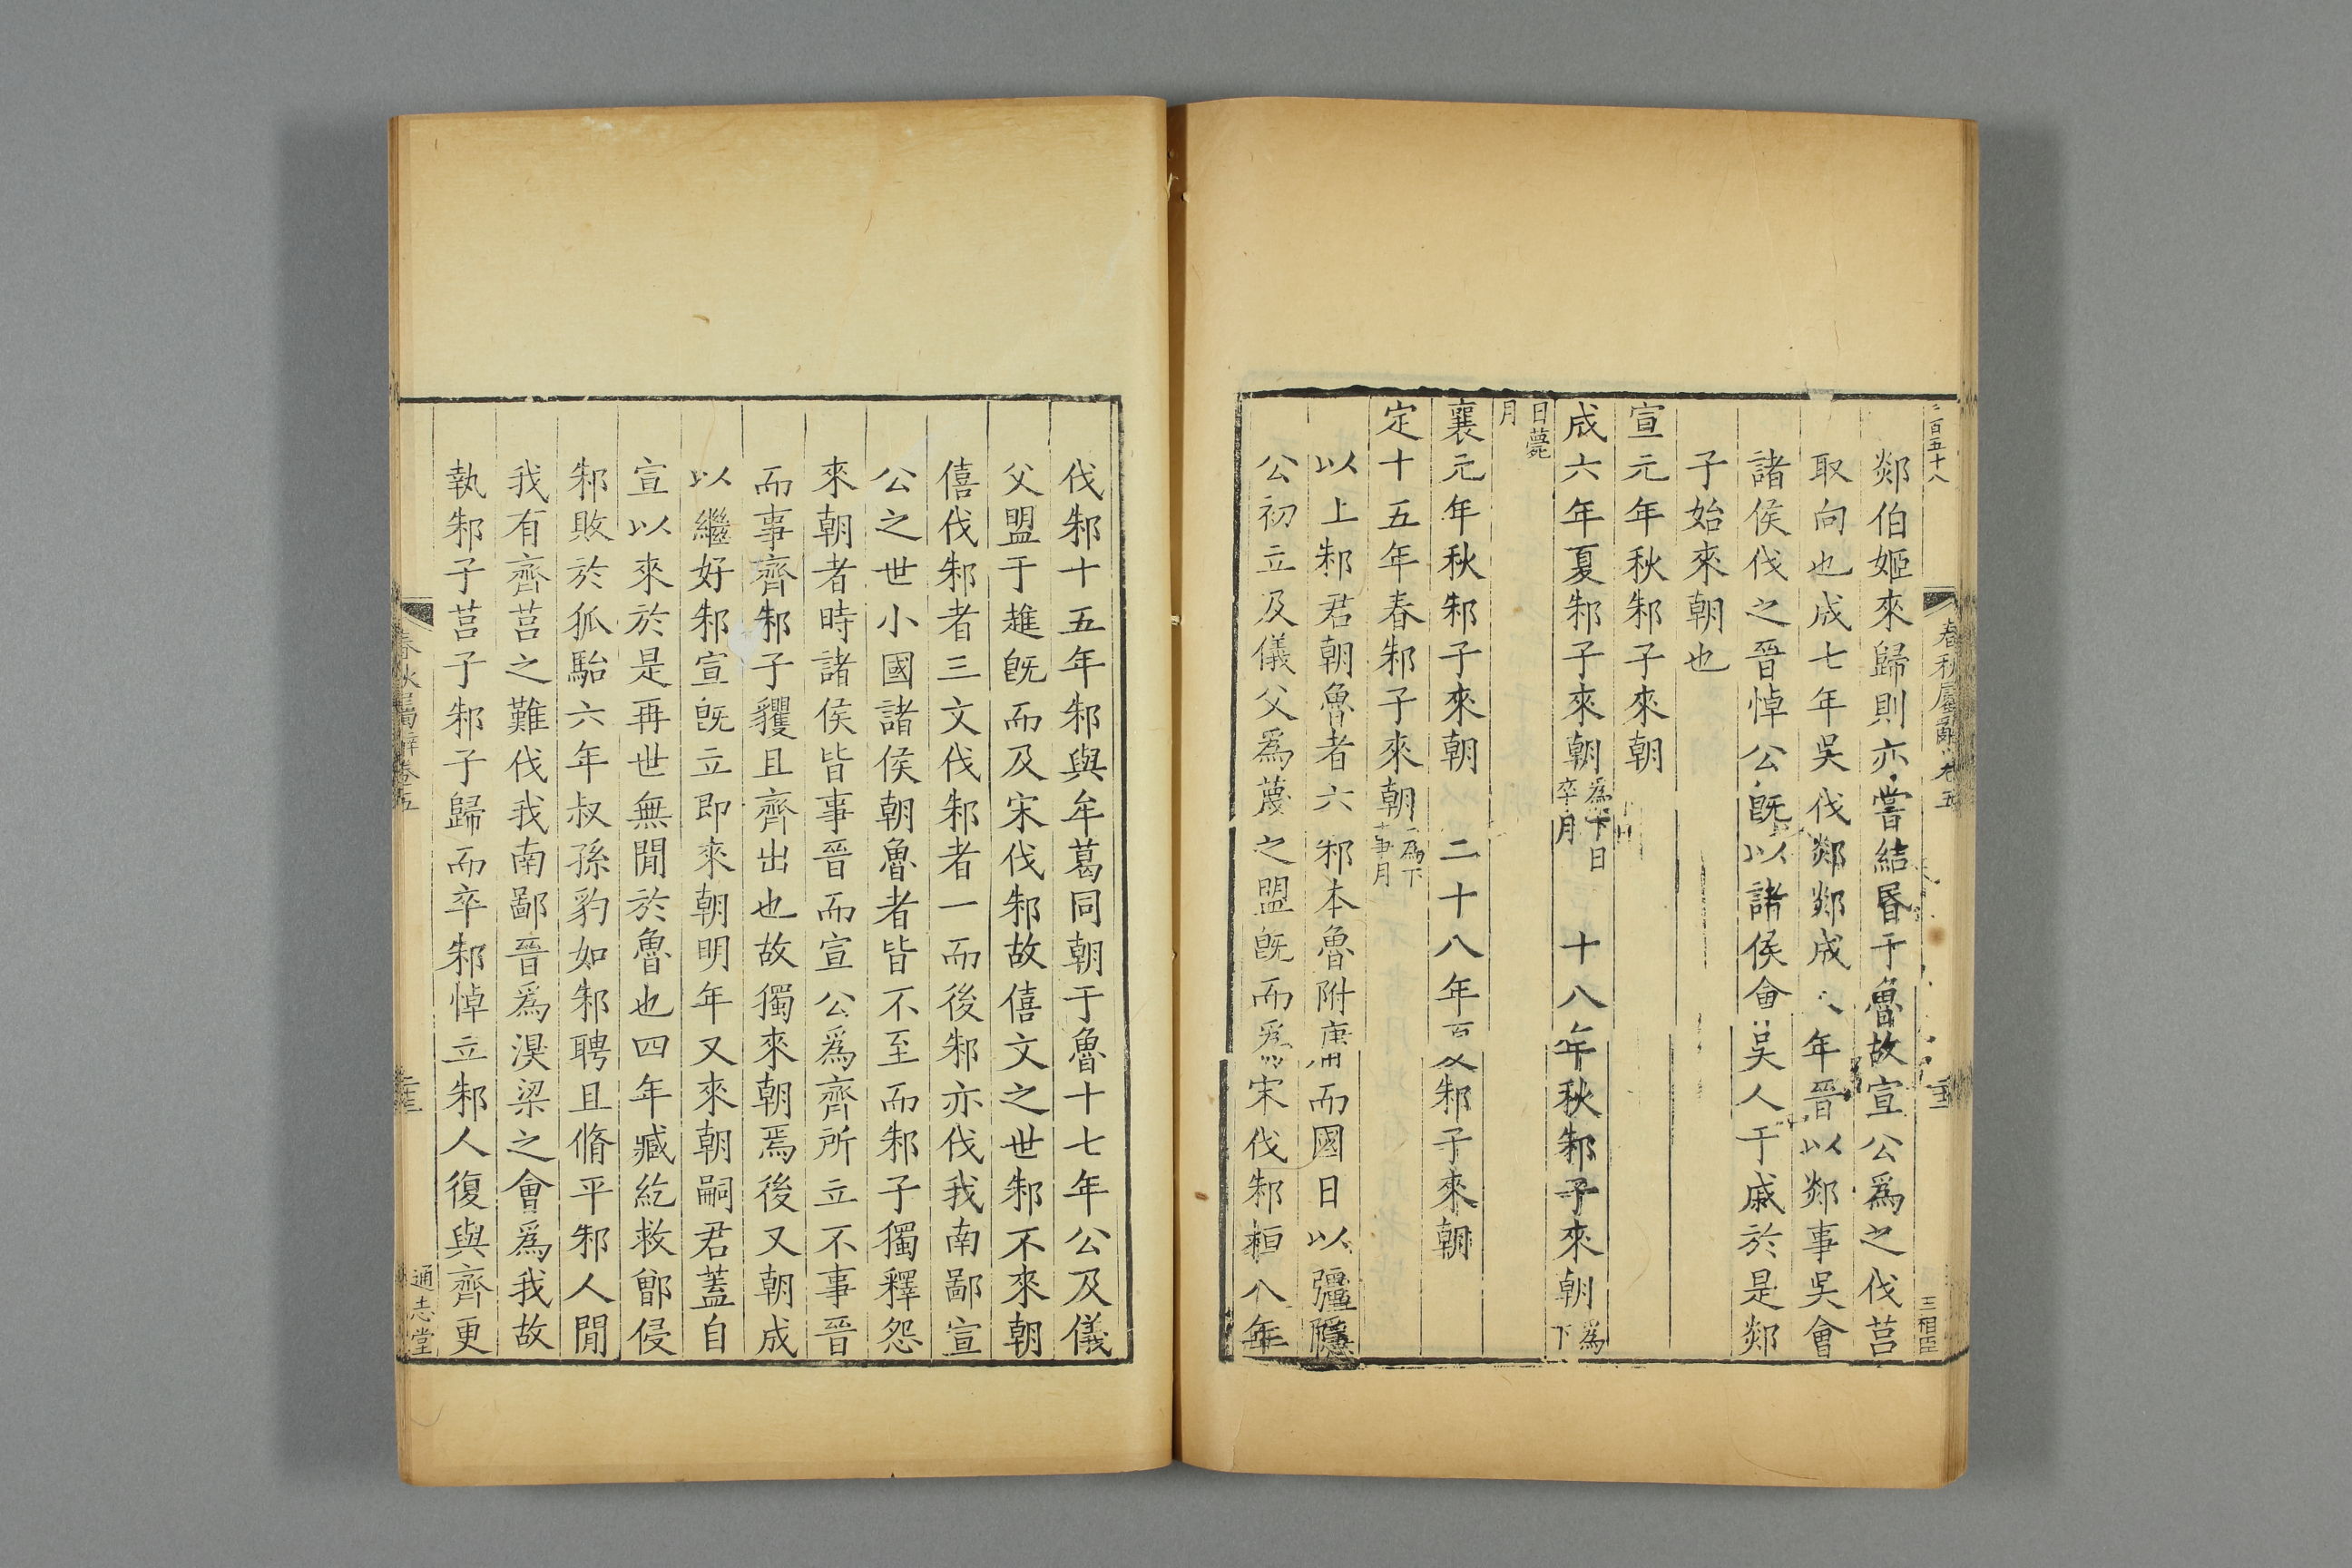 二百五十八
春秋屬辭卷五
三相臣
郯伯姬來歸則亦嘗結昏于魯故宣公爲之伐莒
取向也成七年吳伐郯郯成八年晉以郯事吳會
諸侯伐之晉悼公旣以諸侯會吳人于戚於是郯
子始來朝也
宣元年秋邾子來朝
成六年夏邾子來朝爲下日卒月 十八年秋邾子來朝爲下
日薨月
襄元年秋邾子來朝 二十八年邾子來朝
定十五年春邾子來朝爲下事月
以上邾君朝魯者六邾本魯附庸而國日以彊隱
公初立及儀父爲蔑之盟旣而爲宋伐邾桓八年
伐邾十五年邾與牟葛同朝于魯十七年公及儀
父盟于趡旣而及宋伐邾故僖文之世邾不來朝
僖伐邾者三文伐邾者一而後邾亦伐我南鄙宣
公之世小國諸侯朝魯者皆不至而邾子獨釋怨
來朝者時諸侯皆事晉而宣公爲齊所立不事晉
而事齊邾子貜且齊出也故獨來朝焉後又朝成
以繼好邾宣旣立即來朝明年又來朝嗣君蓋自
宣以來於是再世無閒於魯也四年臧紇救鄫侵
邾敗於狐駘六年叔孫豹如邾聘且脩平邾人閒
我有齊莒之難伐我南鄙晉爲湨梁之會爲我故
執邾子莒子邾子歸而卒邾悼立邾人復與齊更
春秋屬辭卷五
通志堂